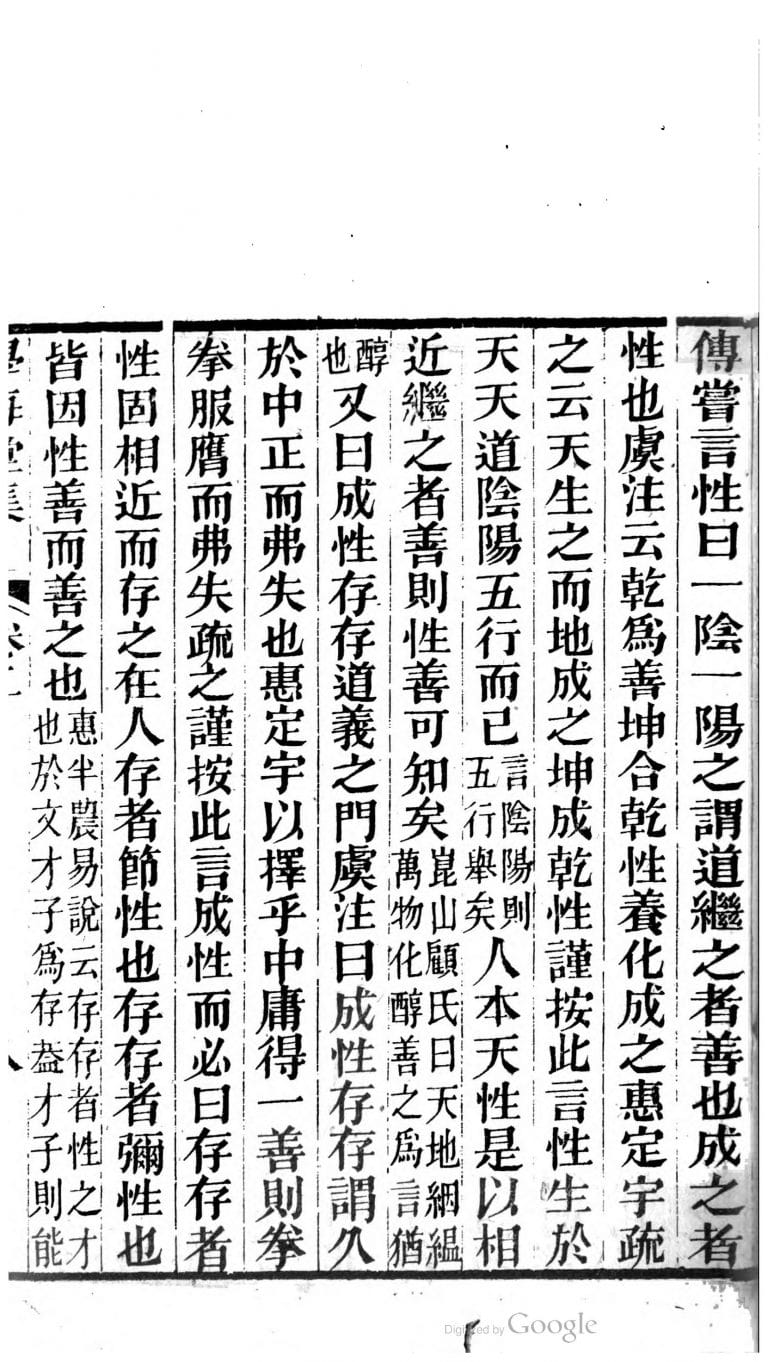 傳嘗言性曰一陰一陽之謂道繼之者善也成之者
性也虞注云乾爲善坤合乾性養化成之惠定宇疏
之云天生之而地成之坤成乾性謹按此言性生於
天天道陰陽五行而已言陰陽則五行舉矣人本天性是以相
近繼之者善則性善可知矣崑山顧氏曰天地絪縕萬物化醇善之爲言猶
醇也又曰成性存存道義之門虞注曰成性存存謂久
於中正而弗失也惠定宇以擇乎中庸得一善則拳
拳服膺而弗失疏之謹按此言成性而必曰存存者
性固相近而存之在人存者節性也存存者彌性也
皆因性善而善之也惠半農易說云存存者性之才也於文才子爲存葢才子則能
學海堂集
Digitized by Google